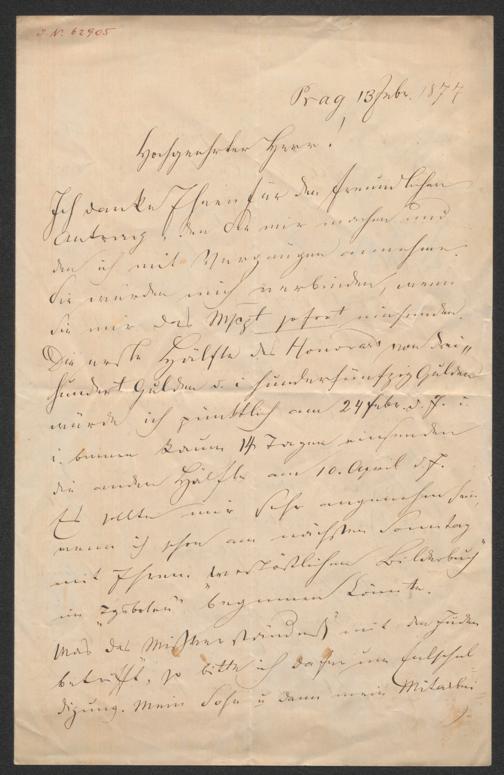 I. N. 62905
Prag 13 Febr. 1874
Hochgeehrter Herr!
Ich danke Ihnen für den freundlichen
Antrag, den Sie mir machen und
den ich mit Vergnügen annehme.
Sie würden mich verbinden, wenn
Sie mir das Mscpt sofort einsenden.
Die erste Hälfte des Honorars von drei„
hundert Gulden d. i. hundertfünfzig Gulden
würde ich pünktlich am 24 Febr. d. J. i
i. binnen kaum 14 Tagen einsenden
die andere Hälfte am 10. April d. J.
Es sollte mir sehr angenehm sein,
wenn ich schon am nächsten Sonntag
mit Ihrem Bilderbuch"
im beginnen könnte.
Was das Mißverständniß mit den Juden
betrifft, so bitte ich daher um Entschul
digung. Mein Sohn u dann mein Mitarbei